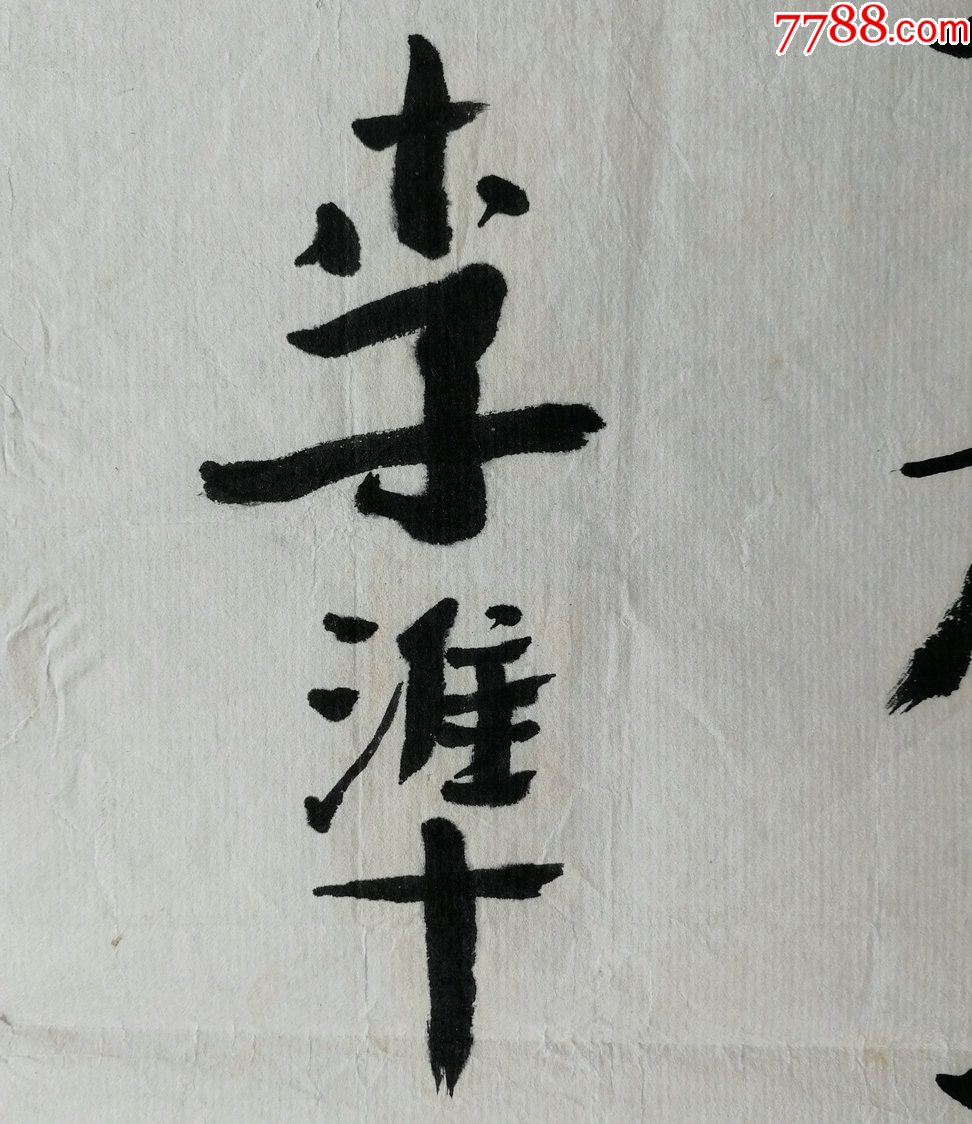 7788.com
李準